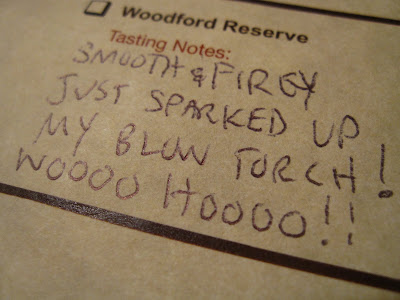 Woodford Reserve
Tasting Notes:
SMOOTH & FIREY
JUST SPARKED UP
MY BLOW TORCH!
WOOOO HOOOO!!